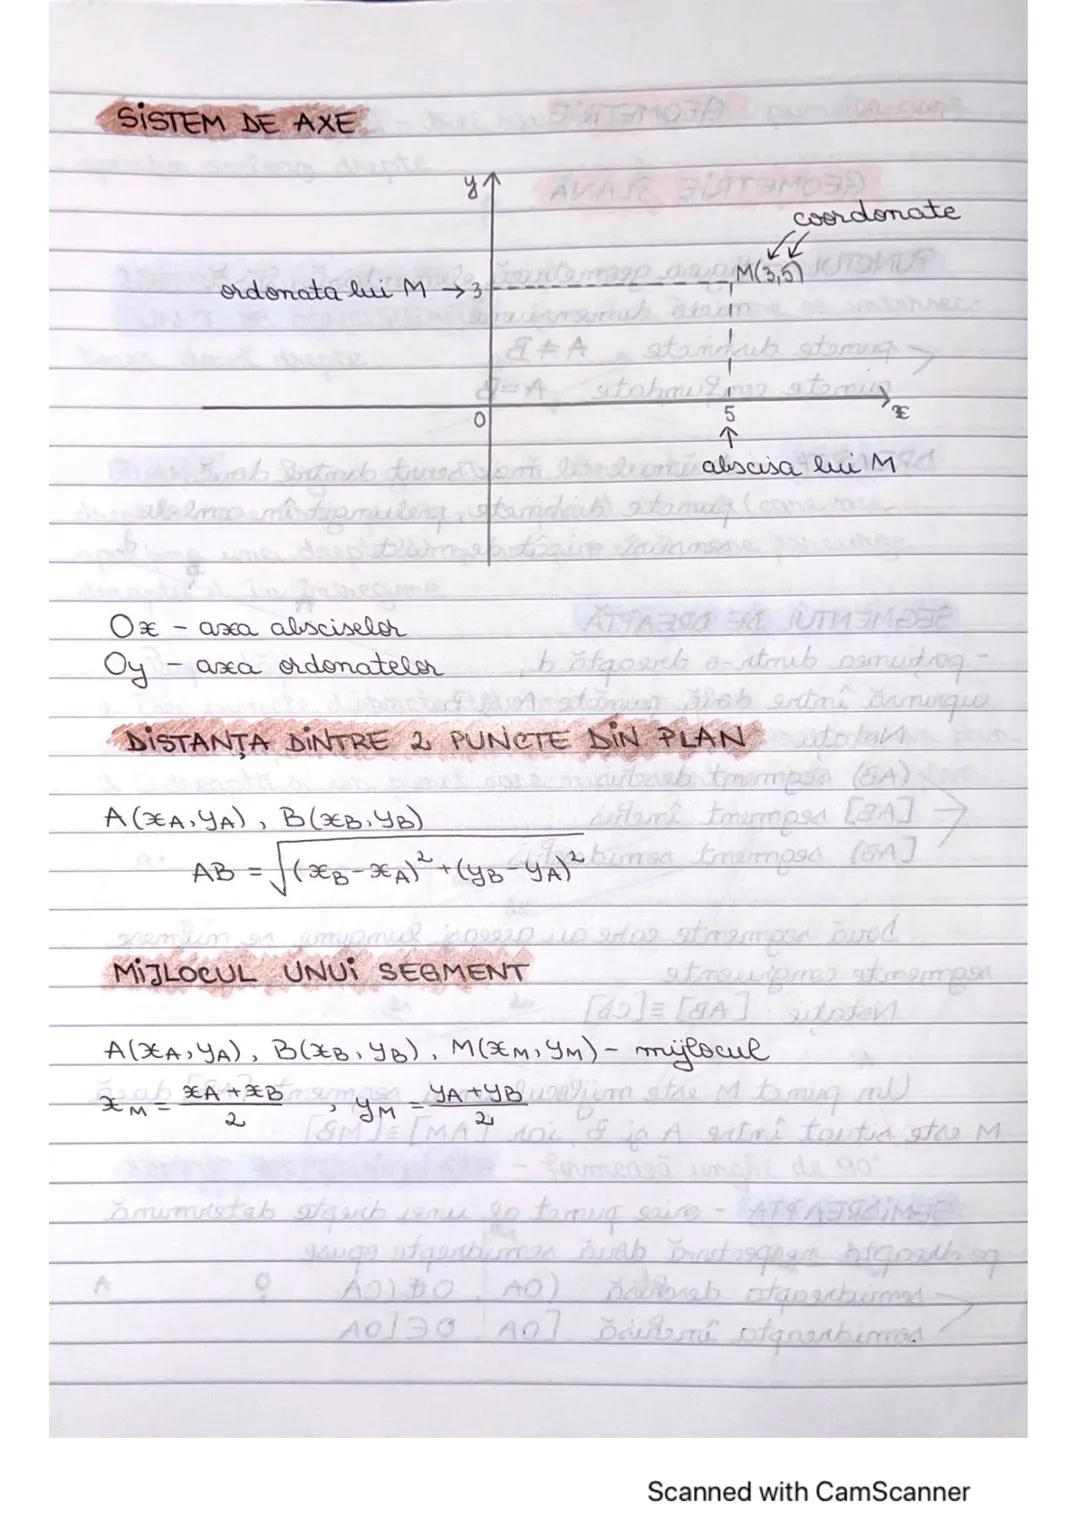 SISTEM DE AXE
y
coordonate
ordonata lui M → 3
M(3,5)
0
5
x
abscisa lui M
Ox - axa absciselor
Oy - axa ordonatelor
DISTANȚA DINTRE 2 PUNCTE DIN PLAN
A(xA, yA), B(xB, yB)
AB = √(xB-xA)²+(yB-yA)²
MIJLOCUL UNUI SEGMENT
A(xA, yA), B(xB, yB), M(xM, yM) - mijlocul
xM = xA+xB/2, yM = yA+yB/2
Scanned with CamScanner